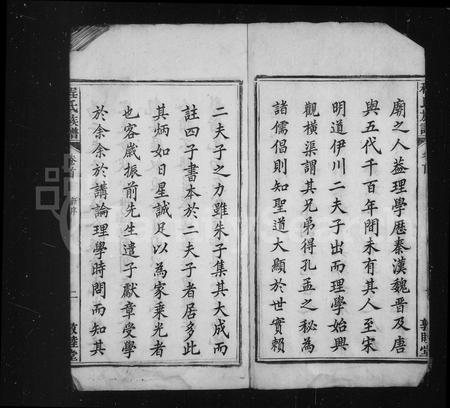 廟之人蓋理學歷秦漢魏晉及唐
與五代千百年間未有其人至宋
明道伊川二夫子出而理學始興
觀橫渠謂其兄弟得孔孟之秘為
諸儒倡則知聖道大顯於世實賴
敦睦堂
二夫子之力雖朱子集其大成而
註四子書本於二夫子者居多此
其炳如日星誠足以為家乘光者
也客歲振前先生遣子獻章受學
於余余於講論理學時間而知其
程氏族譜
卷首
新序
二
敦睦堂